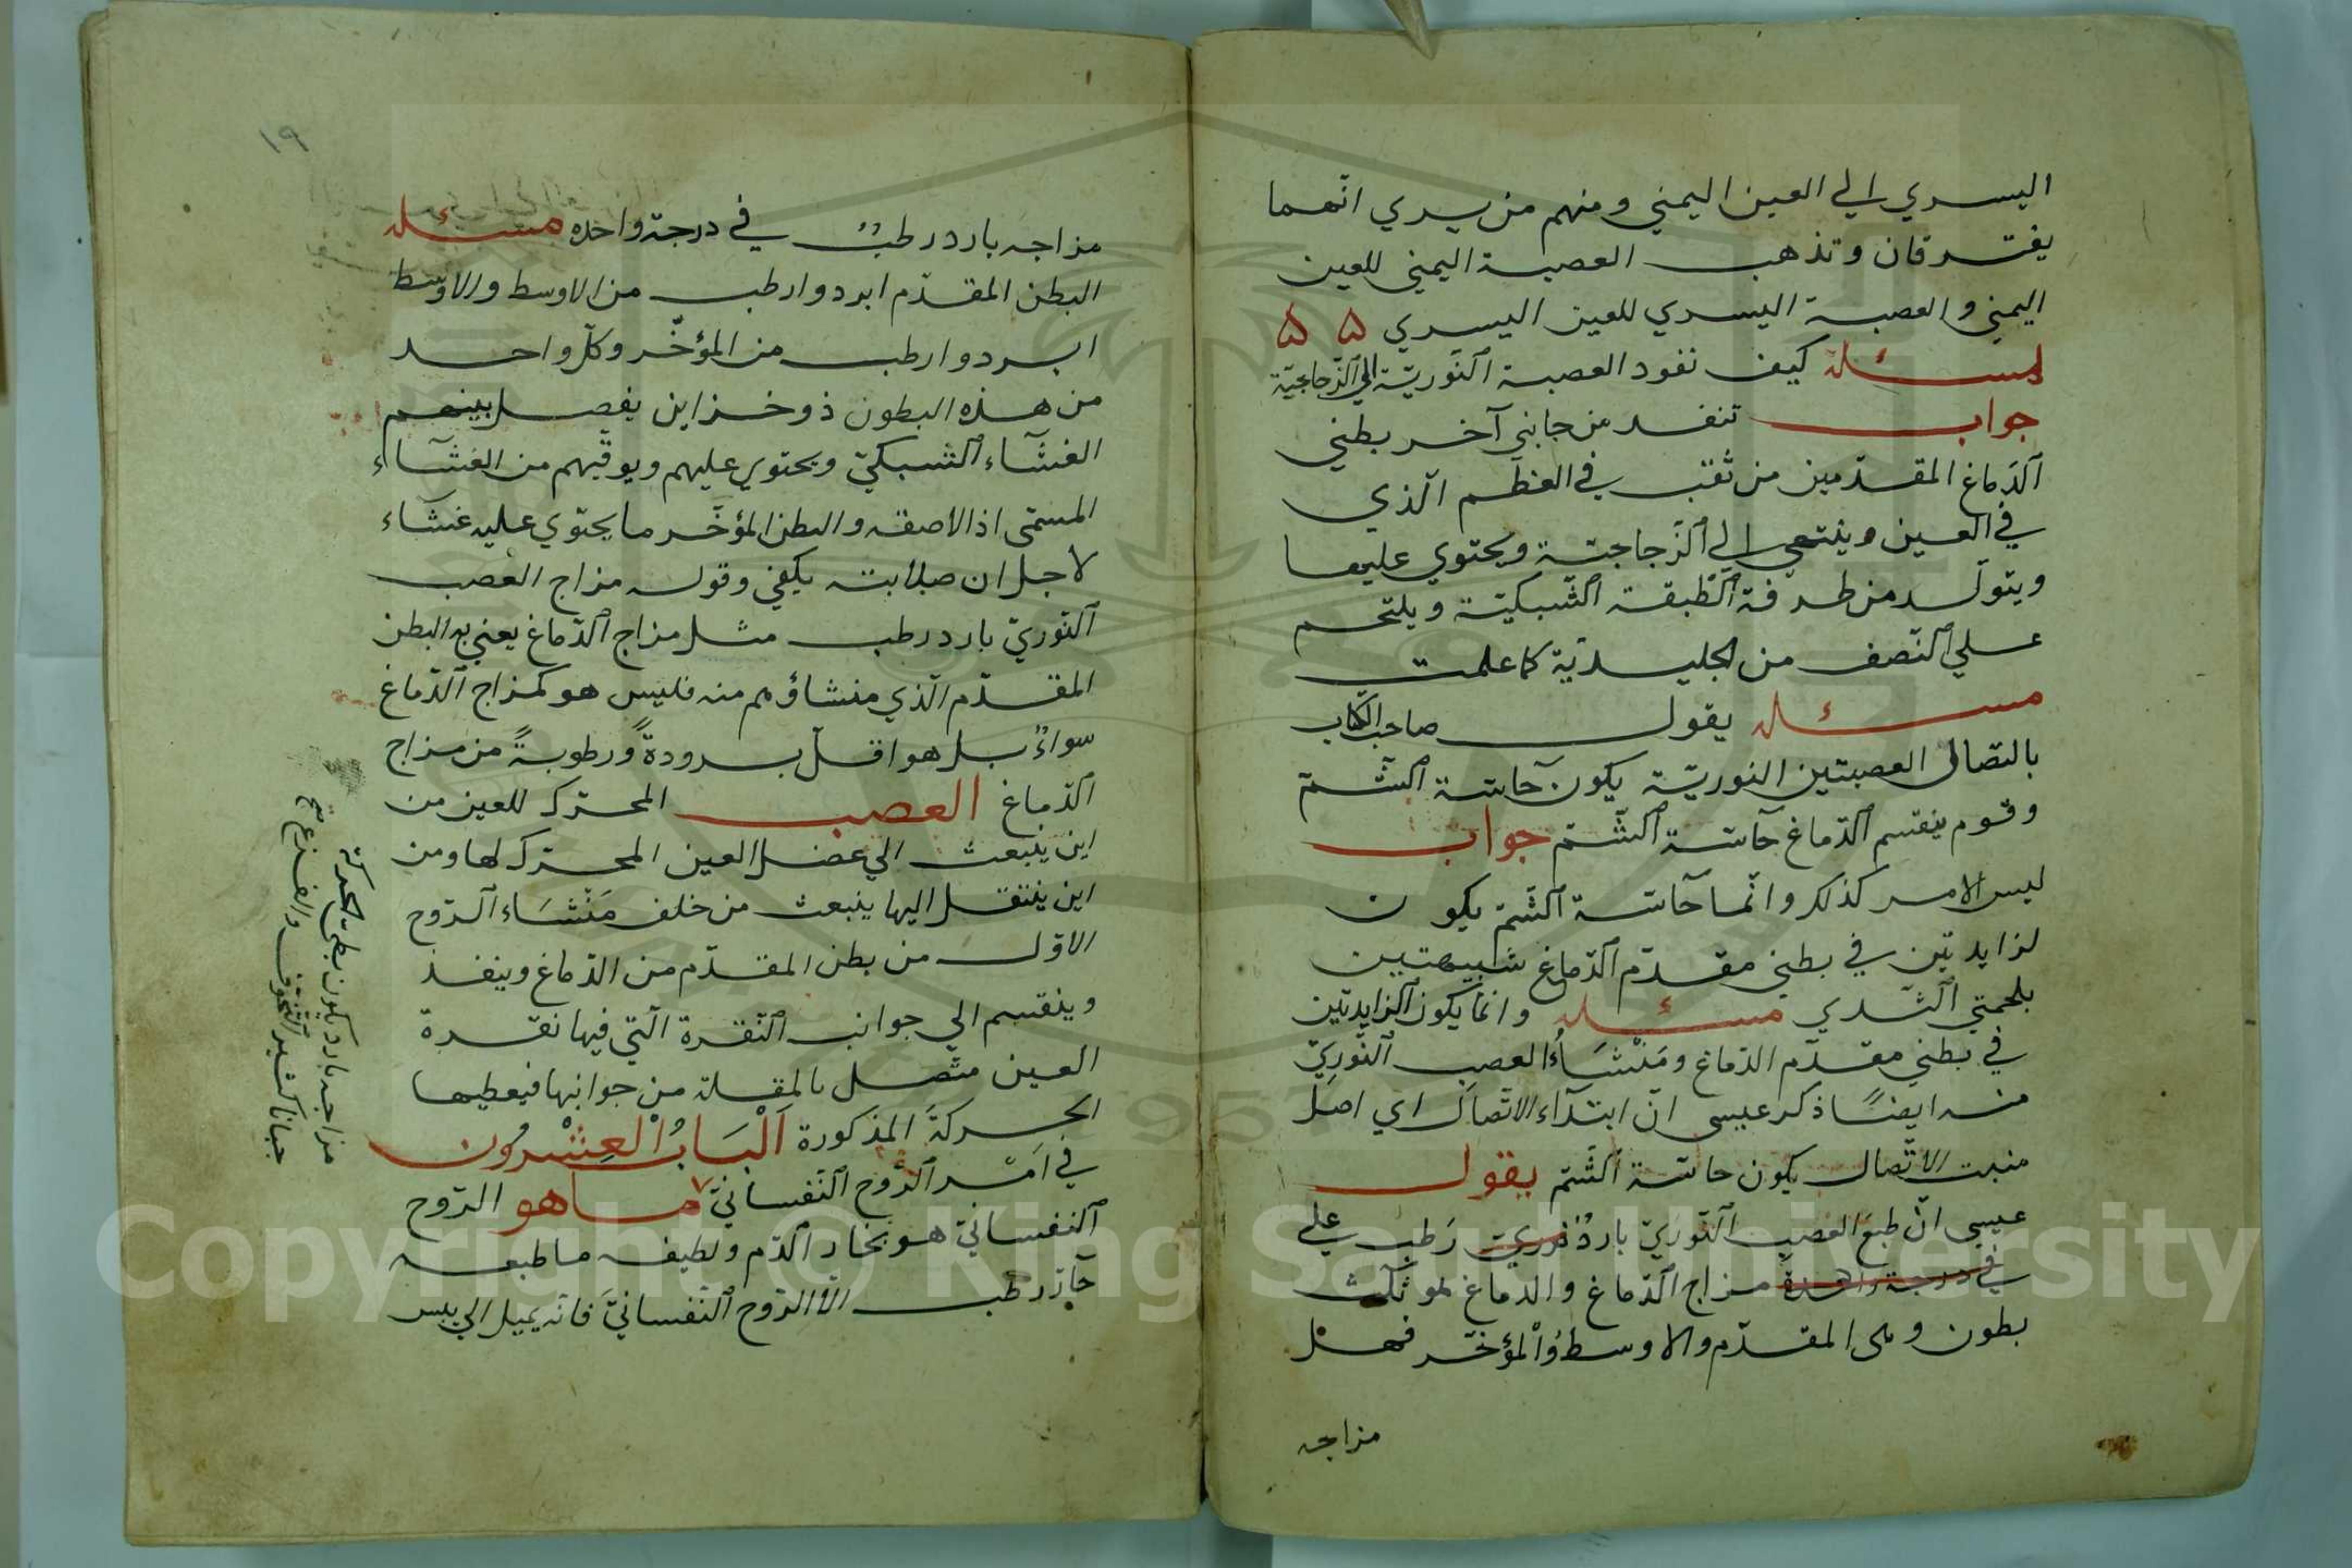 اليسري الي العين اليمني ومنهم من يري انهما
يفترقان وتذهب العصبة اليمني للعين
اليمني والعصبة اليسري للعين اليسري ۵ ۵
مسئلة كيف نفود العصبة النّوريّة الي الزّجاجيّة
جواب تنفد من جانبي آخر بطني
الدّماغ المقدّمين من ثقب في العظم الّذي
في العين وينتهي الي الزّجاجيّة ويحتوي عليها
ويتولّد من طرفه الطّبقة الشّبكيّة ويلتحم
علي النّصف من الجليديّة كما علمت
مسئله يقول صاحب الكتاب
باتّصال العصبتين النوريّة يكون حآسّة الشّمّ
وقوم ينقسم الدّماغ حآسّة الشّمّ جواب
ليس الامر كذلك وانّما حآسّة الشّمّ يكون
لزايدتين في بطني مقدّم الدّماغ شبيهتين
بلحمتي الثّدي مسئله وانّما يكون الزايدتين
في بطني مقدّم الدّماغ ومَنْشَاُء العصب النّوريّ
منه ايضًا ذكر عيسى انّ ابتدآء الاتّصال اي اصل
منبت الاتّصال يكون حاسّة الشّم يقول
عيسى انّ طبع العصب النّوريّ باردٌ نوريّ رَطب علي
في درجة واحدة مزاج الدّماغ والدماغ لهو ثلث
بطون وهي المقدّم والاوسط والْمؤخّر فهل
مزاجه
١٩
مزاجه بارد رطبٌ في درجة واحده مسئله
البطن المقدّم ابرد وارطب من الاوسط والاوسط
ابرد وارطب من المؤخّر وكلّ واحد
من هذه البطون ذو خزاين يفصل بينهم
الغشآء الشّبكيّ ويحتوي عليهم ويوقّيهم من الغشآء
المسمّى اذالاصقه والبطن المؤخّر ما يحتوي عليه غشآء
لاجل ان صلابته يكفي وقوله مزاج العصب
النّوريّ بارد رطب مثل مزاج الدّماغ يعني به البطن
المقدّم الّذي منشاؤهم منه فليس هو كمزاج الدّماغ
سواءٌ بل هو اقلّ برودةً ورطوبةً من مزاج
الدّماغ العصب المحرّك للعين من
اين ينبعث الي عضل العين المحرّك لها ومن
اين ينتقل اليها ينبعث من خلف مَنْشَاء الرّوح
الاوّل من بطن المقدّم من الدّماغ وينفذ
وينقسم الي جوانب النّقرة الّتي فيها نقرة
العين متّصل بالمقلة من جوانبها فيعطيها
الحركةَ المذكورة اَلْبَابُ الْعِشْرُون
في اَمْر الرُّوح النّفسانيّ ما هو الرّوح
النفسانيّ هو بخار الدّم ولطيفه ما طبعه
حآرّ رطب الّا الرّوح النّفسانيّ فانّه يميل الي يبس
مزاجه بارد يكون بطئ الحركة
جبانا كثير الخوف والفزع صح
Copyright © King Saud University
1957